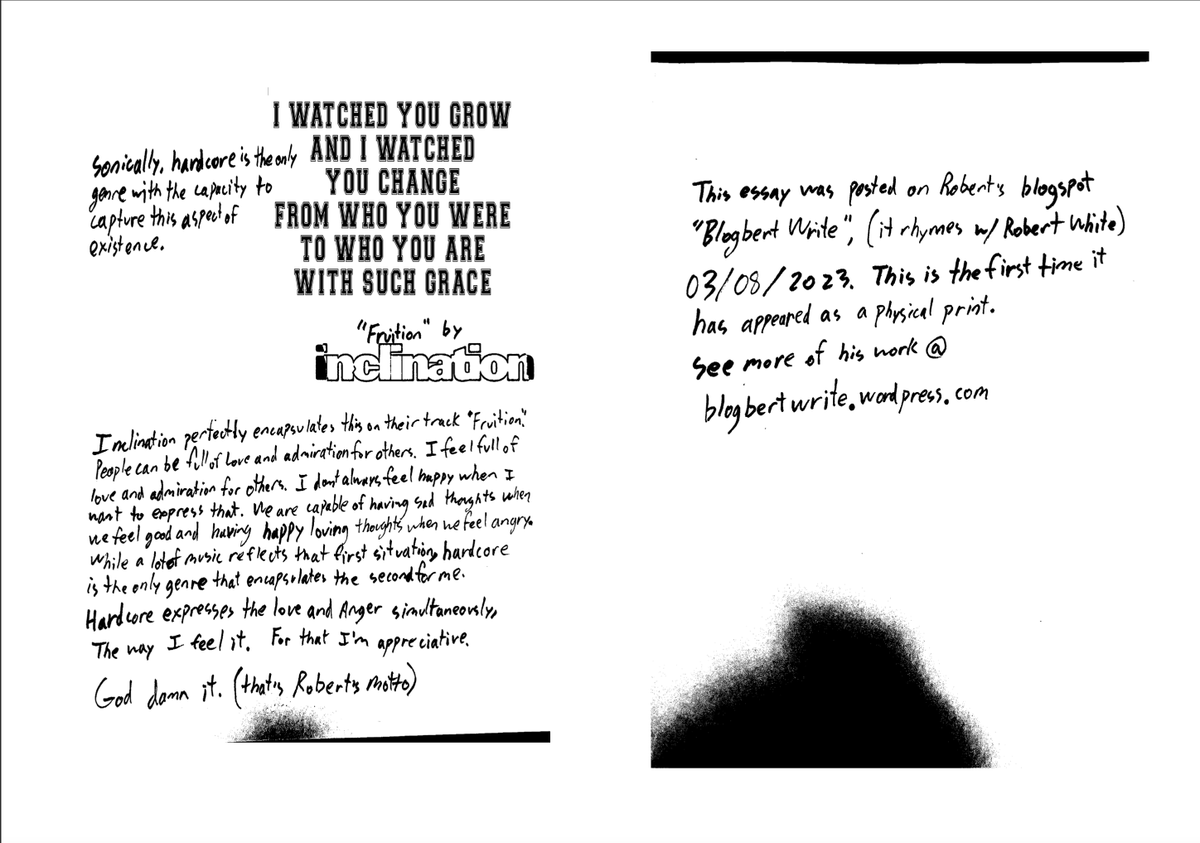 Sonically, hardcore is the only
genre with the capacity to
capture this aspect of
existence.
I WATCHED YOU GROW
AND I WATCHED
YOU CHANGE
FROM WHO YOU WERE
TO WHO YOU ARE
WITH SUCH GRACE
"Fruition" by
inclination
Inclination perfectly encapsulates this on their track "Fruition".
People can be full of love and admiration for others. I feel full of
love and admiration for others. I dont always feel happy when I
want to express that. We are capable of having sad thoughts when
we feel good and having happy loving thoughts when we feel angry.
While a lot of music reflects that first situation, hardcore
is the only genre that encapsulates the second for me.
Hardcore expresses the love and Anger simultaneously,
The way I feel it. For that I'm appreciative.
God damn it. (that's Robert's motto)
This essay was posted on Robert's blogspot
"Blogbert Write", (it rhymes w/ Robert White)
03/08/2023. This is the first time it
has appeared as a physical print.
see more of his work @
blogbertwrite.wordpress.com